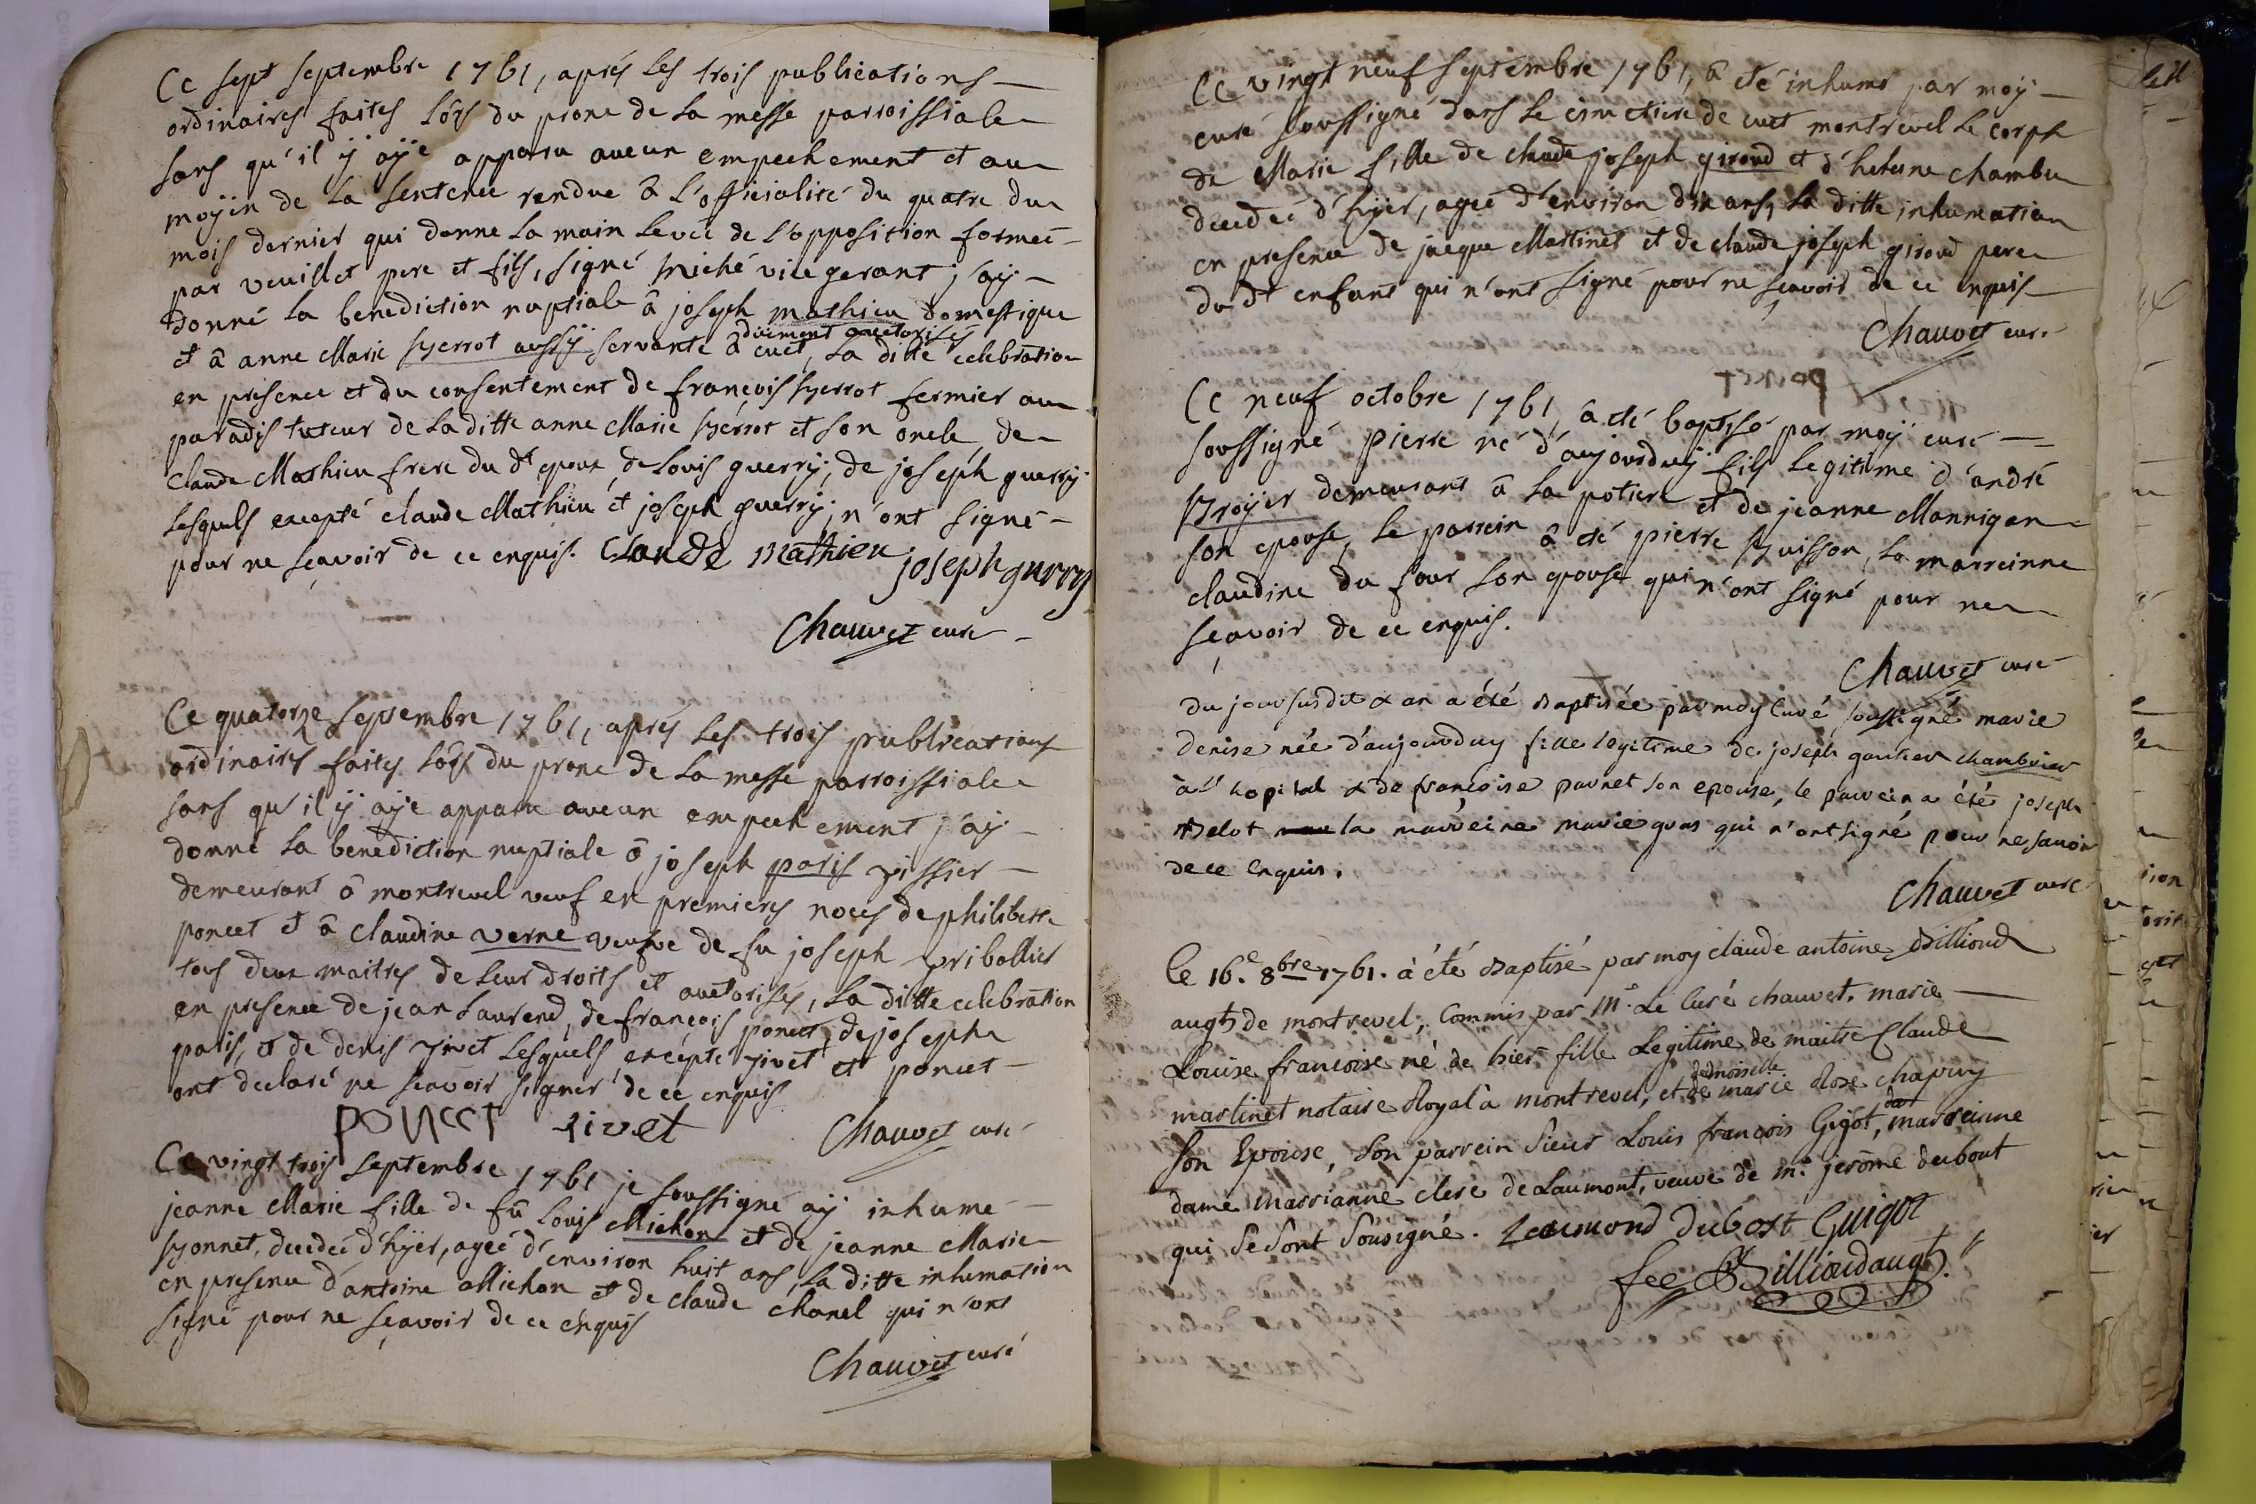 Ce sept septembre 1761, aprés les trois publications
ordinaires faites lors du prone de la messe parroissiale
sans qu'il ÿ aÿe apparu aucun empechement et au
moÿen de la sentence rendue à l'officialité du quatre du
mois dernier qui donne la main levée de l'opposition formeé
par veuillet pere et fils, signé miché vicegerant j'aÿ
donné la benediction nuptiale â joseph mathieu domestique
et â anne Marie perrot aussÿ servante â cuet, duement auctorisés la ditte celebration
en presence et du consentement de françois perrot fermier au
paradis tuteur de la ditte anne Marie perrot et son oncle, de
claude Mathieu frere du dt epoux de louis guerrÿ, de joseph guerrÿ
lesquels excepté claude Mathieu et joseph guerrÿ, n'ont signé
pour ne sçavoir de ce enquis. Claude Mathieu joseph gurry
Chauvet curé
Ce quatorze septembre 1761, aprés les trois publications
ordinaires faites lors du prone de la messe parroissiale
sans qu'il ÿ aÿe apparu aucun empechement j'aÿ
donné la benediction nuptiale â joseph paris
demeurant â montrevel veuf en premieres noces de philiberte
poncet et â claudine verne veufve de fu joseph priballier
tous deux maitres de leur droits et auctorisés, la ditte celebration
en presence de jean Laurend, de françois poncet, de joseph
paris, et de denis rivet lesquels excepté rivet et poncet
ont declaré ne sçavoir signer de ce enquis
poncet rivet Chauvet curé
Ce vingt trois septembre 1761 je soussigné aÿ inhumé
jeanne Marie fille de fû louis Michon et de jeanne Marie
ponnet, decedeé d'hÿer, ageé d'environ huit ans, la ditte inhumation
en presence d'antoine Michon et de claude chanel qui n'ont
signé pour ne sçavoir de ce enquis
Chauvet curé
Ce vingt neuf septembre 1761, â eté inhumé par moÿ
curé soussigné dans le cimetiere de cuet montrevel le corph
de Marie fille de claude joseph giroud et d'helene chambu
decedeé d'hÿer, ageé d'environ dix ans, la ditte inhumation
en presence de jacque Martinet et de claude joseph giroud pere
du dt enfant qui n'ont signé pour ne sçavoir de ce enquis
Chauvet curé
Ce neuf octobre 1761, â eté baptisé par moÿ curé
soussigné pierre né d'aujourduÿ fils legitime d'andré
broÿer demeurant â la potiere et de jeanne Mannigan
son epouse, le parrein â eté pierre buisson, la marreinne
claudine du four son epouse qui n'ont signé pour ne
sçavoir de ce enquis.
Chauvet curé
du jour susdit & an a été baptisée par moy curé soussigné marie
denise née d'aujourduy fille legitime de joseph gautier chambrier
à l'hopital & de françoise parnet son epouse, le parrein a été joseph
belot la marreine marie gras qui n'ont signé pour ne savoir
de ce enquis.
Chauvet curé
Ce 16.e 8bre 1761. à été baptisé par moy claude antoine billioud
augt de montrevel, commis par Mr. Le Curé chauvet. marie
Louise francoise né de hier fille Legitime de maitre Claude
martinet notaire Royal à montrevel, et de demoiselle marie Rose chapuy
son Epouse, son parrein sieur Louis francois Gigot, marreinne
dame marrianne clere de Laumont, veuve de mr. jerôme dubout
qui se sont sousigné. Laumond dubost Guigot
Billioudaugt.